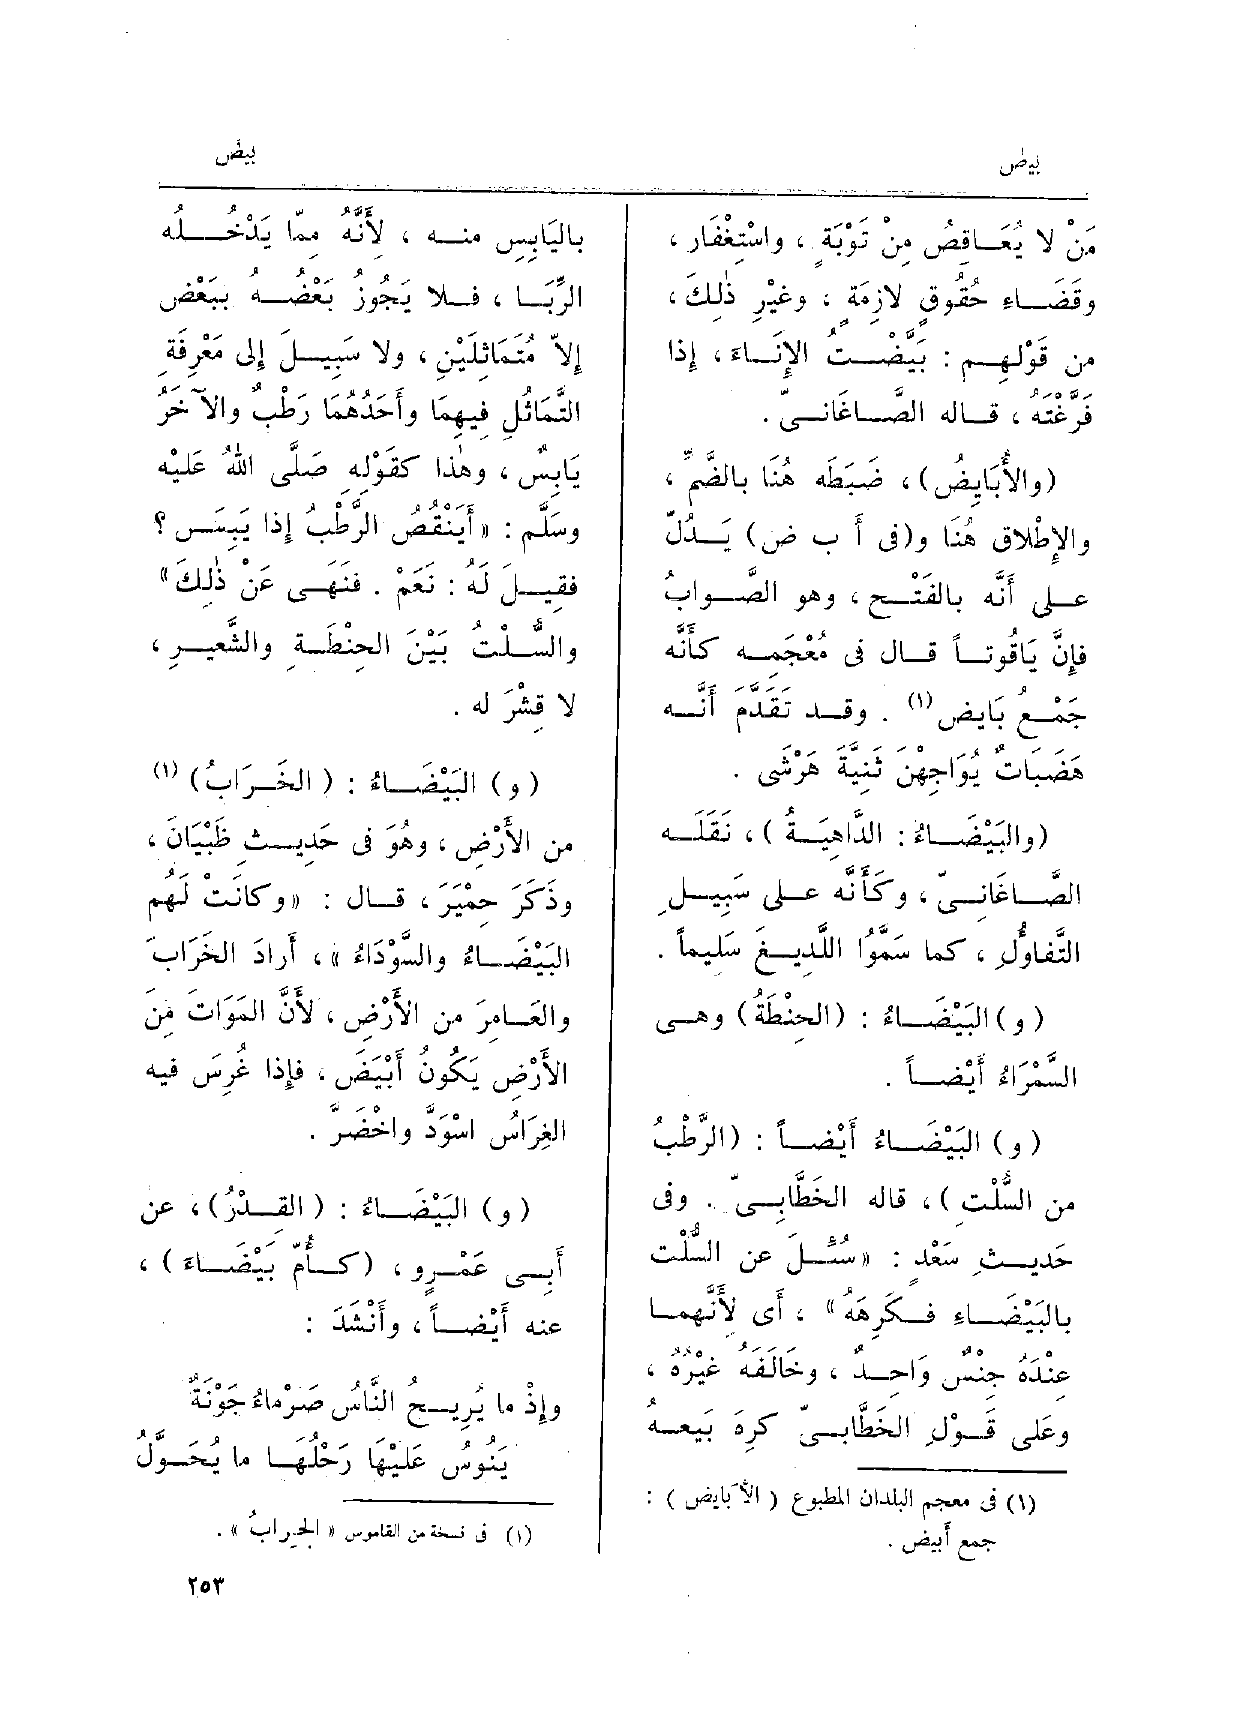 بيض
بيض
مَنْ لا يُعَـاقِصُ مِنْ تَوْبَةٍ ، واسْتِغْفَار ،
وقَضَـاءِ حُقُوقٍ لازِمَةٍ ، وغَيْرِ ذٰلِكَ ،
من قَوْلِهِـم : بَيَّضْـتُ الإِنَـاءَ ، إِذا
فَرَّغْتَه ، قـاله الصَّـاغَانـيّ .
(والأُبَايِضُ) ، ضَبَطَه هُنَا بالضَّمِّ ،
والإِطْلاق هُنَا و(فى أ ب ض) يَـدُلّ
عـلى أَنَّه بالفَتْـح ، وهو الصَّـوابُ
فإِنَّ يَاقُوتـاً قـال فى مُعْجَمِـه كأَنَّه
جَمْـعُ بَايِض (١) . وقـد تَقَدَّمَ أَنَّـه
هَضَبَاتٌ يُوَاجِهْن ثَنِيَّةَ هَرْشَى .
(والبَيْضَـاءُ : الدَّاهِيَـةُ ) ، نَقَلَـه
الصَّـاغَانـيّ ، وكَأَنَّه عـلى سَبِيـلِ
التَّفاؤُلِ ، كما سَمَّوُا اللَّدِيـغَ سَلِيماً .
( و ) البَيْضَـاءُ : (الحِنْطَةُ ) وهـى
السَّمْرَاءُ أَيْضـاً .
( و ) البَيْضَـاءُ أَيْضـاً : (الرَّطْبُ
من السُّلْتِ ) ، قاله الخَطَّابـيّ . وفى
حَدِيـثِ سَعْدٍ : «سُئِـلَ عن السُّلْت
بالبَيْضَـاءِ فـكَرِهَهُ » ، أَى لأَنَّهمـا
عِنْدَهُ جِنْسٌ وَاحِـدٌ ، وخَالَفَهُ غَيْرُهُ ،
وعَلى قَـوْلِ الخَطَّابـيّ كَرِهَ بَيعـه
(١) فى معجم البلدان المطبوع ( الأَبَايض ) :
جمع أبيض .
باليَابِسِ منـه ، لأَنَّهُ مِمّا يَدْخُـلُه
الرِّبَـا ، فـلا يَجُوزُ بَعْضُـه ببَعْضٍ
إِلاَّ مُتَمَاثِلَيْنِ ، ولا سَبِيـلَ إِلى مَعْرِفَةِ
التَّمَاثُلِ فِيهِمَا وأَحَدُهُمَا رَطْبٌ والآخَرُ
يَابِسٌ ، وهٰذا كقَوْلِهِ صَلَّى اللهُ عَلَيْه
وسَلَّم : «أَيَنْقُصُ الرُّطْبُ إِذا يَبِـسَ ؟
فقِيـلَ لَهُ : نَعَمْ . فنَهَـى عَنْ ذٰلِكَ»
والسُّـلْتُ بَيْنَ الحِنْطَـةِ والشَّعِيـرِ ،
لا قِشْرَ له .
( و ) البَيْضَـاءُ : ( الخَـرَابُ ) (١)
من الأَرْضِ ، وهُوَ فى حَدِيـثِ ظَبْيَانَ ،
وذَكَرَ حِمْيَرَ ، قـال : «وكانَتْ لَهُم
البَيْضَـاءُ والسَّوْدَاءُ » ، أَرادَ الخَرَابَ
والعَـامِرَ من الأَرْضِ ، لأَنَّ المَوَاتَ مِنَ
الأَرْضِ يَكُونُ أَبْيَضَ ، فإِذا غُرِسَ فيه
الغِرَاسُ اسْوَدَّ واخْضَرَّ .
( و ) البَيْضَـاءُ : ( القِـدْرُ ) ، عن
أَبـى عَمْـرٍو ، (كـأُمِّ بَيْضَـاءَ ) ،
عنه أَيْضـاً ، وأَنْشَدَ :
وإِذْ ما يُرِيـحُ النَّاسُ صَرْمَاءُ جَوْنَةٌ
يَنُوسُ عَلَيْهَا رَحْلُهَـا ما يُحَـوَّلُ
(١) فى نسخة من القاموس « الجِرابُ » .
٢٥٣